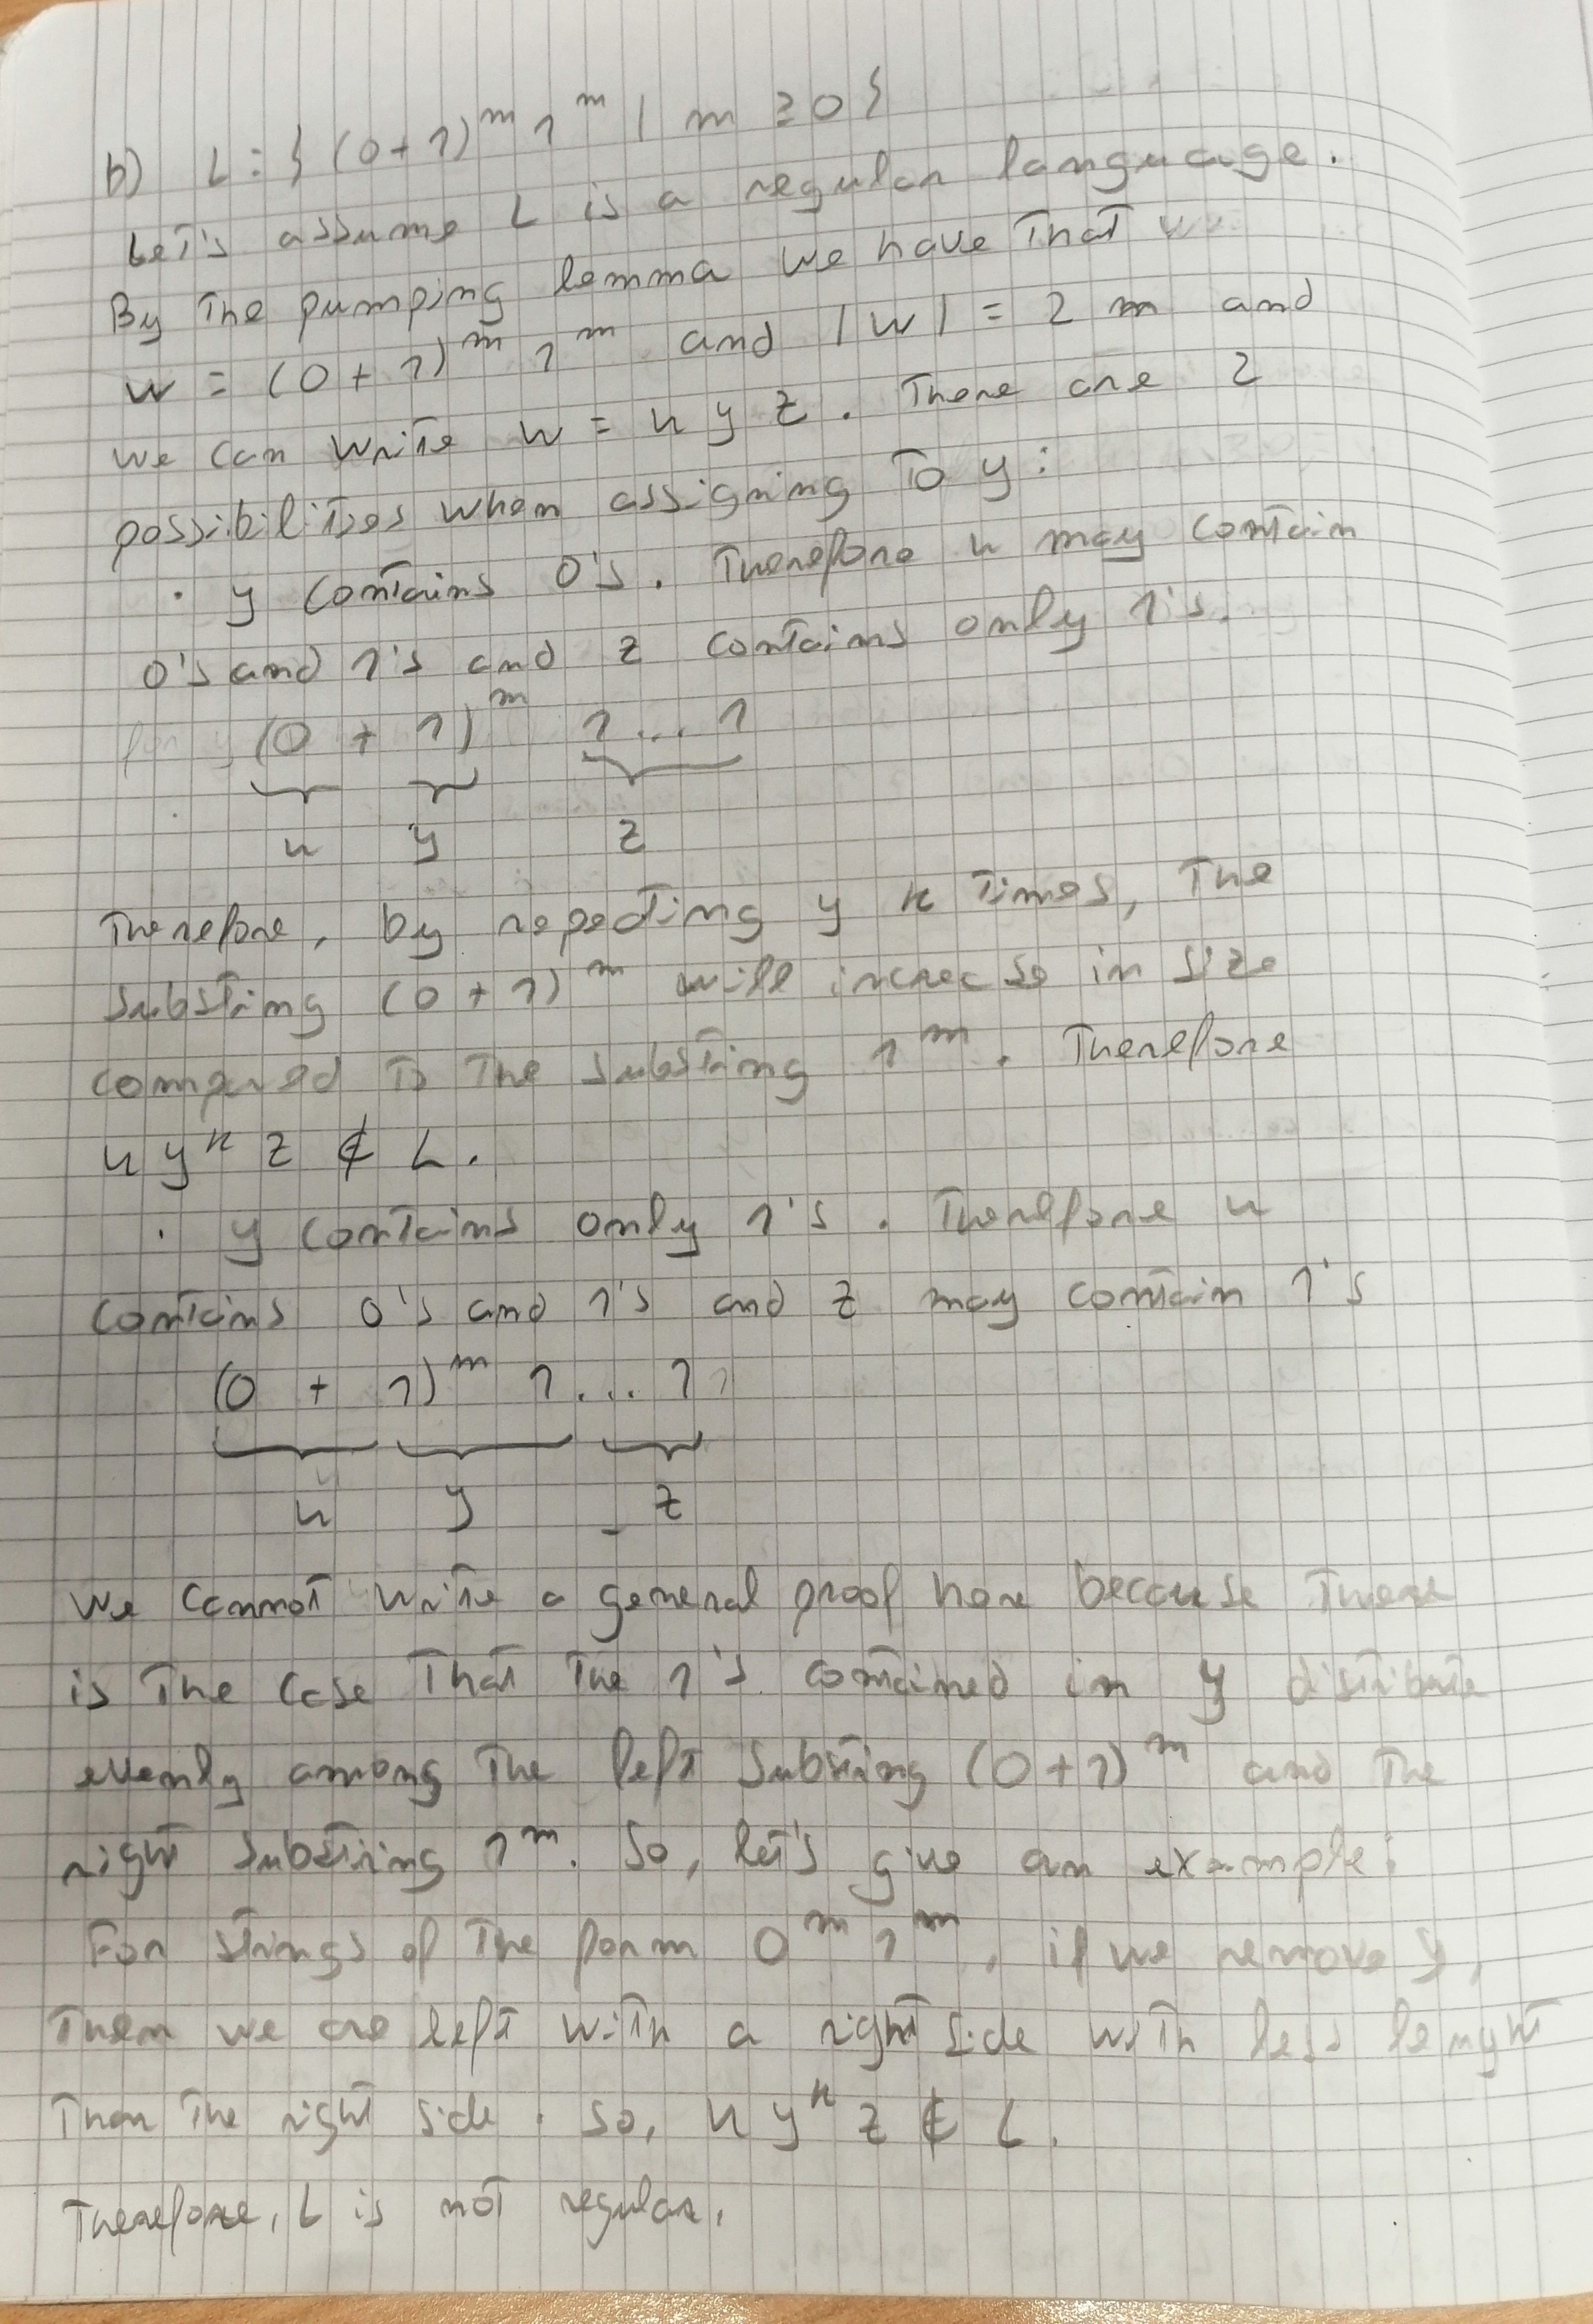 b) L = { (0+1)^m 1^m | m ≥ 0 }
Let's assume L is a regular language.
By the pumping lemma we have that
w = (0+1)^m 1^m and |w| = 2m and
we can write w = u y z. There are 2
possibilities when assigning to y:
· y contains 0's. Therefore u may contain
0's and 1's and z contains only 1's.
(0 + 1)^m 1...1
u y z
Therefore, by repeating y k times, the
substring (0+1)^m will increase in size
compared to the substring 1^m. Therefore
u y^k z ∉ L.
· y contains only 1's. Therefore u
contains 0's and 1's and z may contain 1's
(0 + 1)^m 1...1
u y z
We cannot write a general proof here because there
is the case that the 1's contained in y distribute
evenly among the left substring (0+1)^m and the
right substring 1^m. So, let's give an example:
For strings of the form 0^m 1^m, if we remove y,
then we are left with a right side with less lenght
than the right side. So, u y^k z ∉ L.
Therefore, L is not regular.